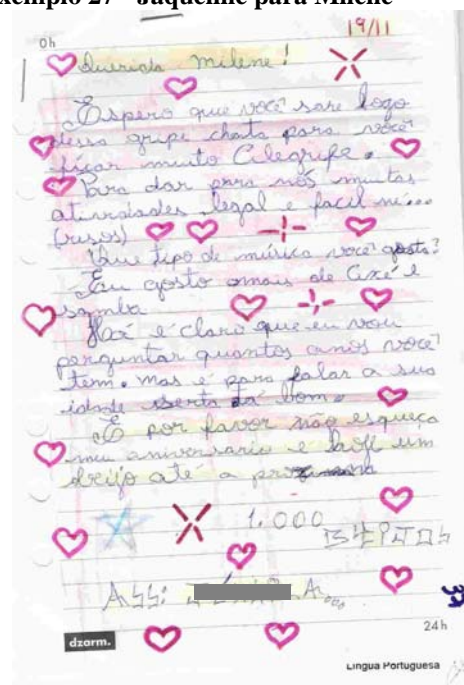 Exemplo 27 - Jaqueline para Milene
19/11
0h
Querida Milene!
Espero que você sare logo
dessa gripe chata para você
ficar muito
Para dar para nós muitas
atividades legal e facil né...
(risos)
Que tipo de música você gosta?
Eu gosto mais de axé e
samba
é claro que eu vou
perguntar quantos anos você
tem. mas é para falar a sua
idade serta tá bom.
E por favor não esqueça
meu aniversario e hoje um
beijo até a
1.000
BEIJOS
ASS:
24h
dzarm.
Língua Portuguesa